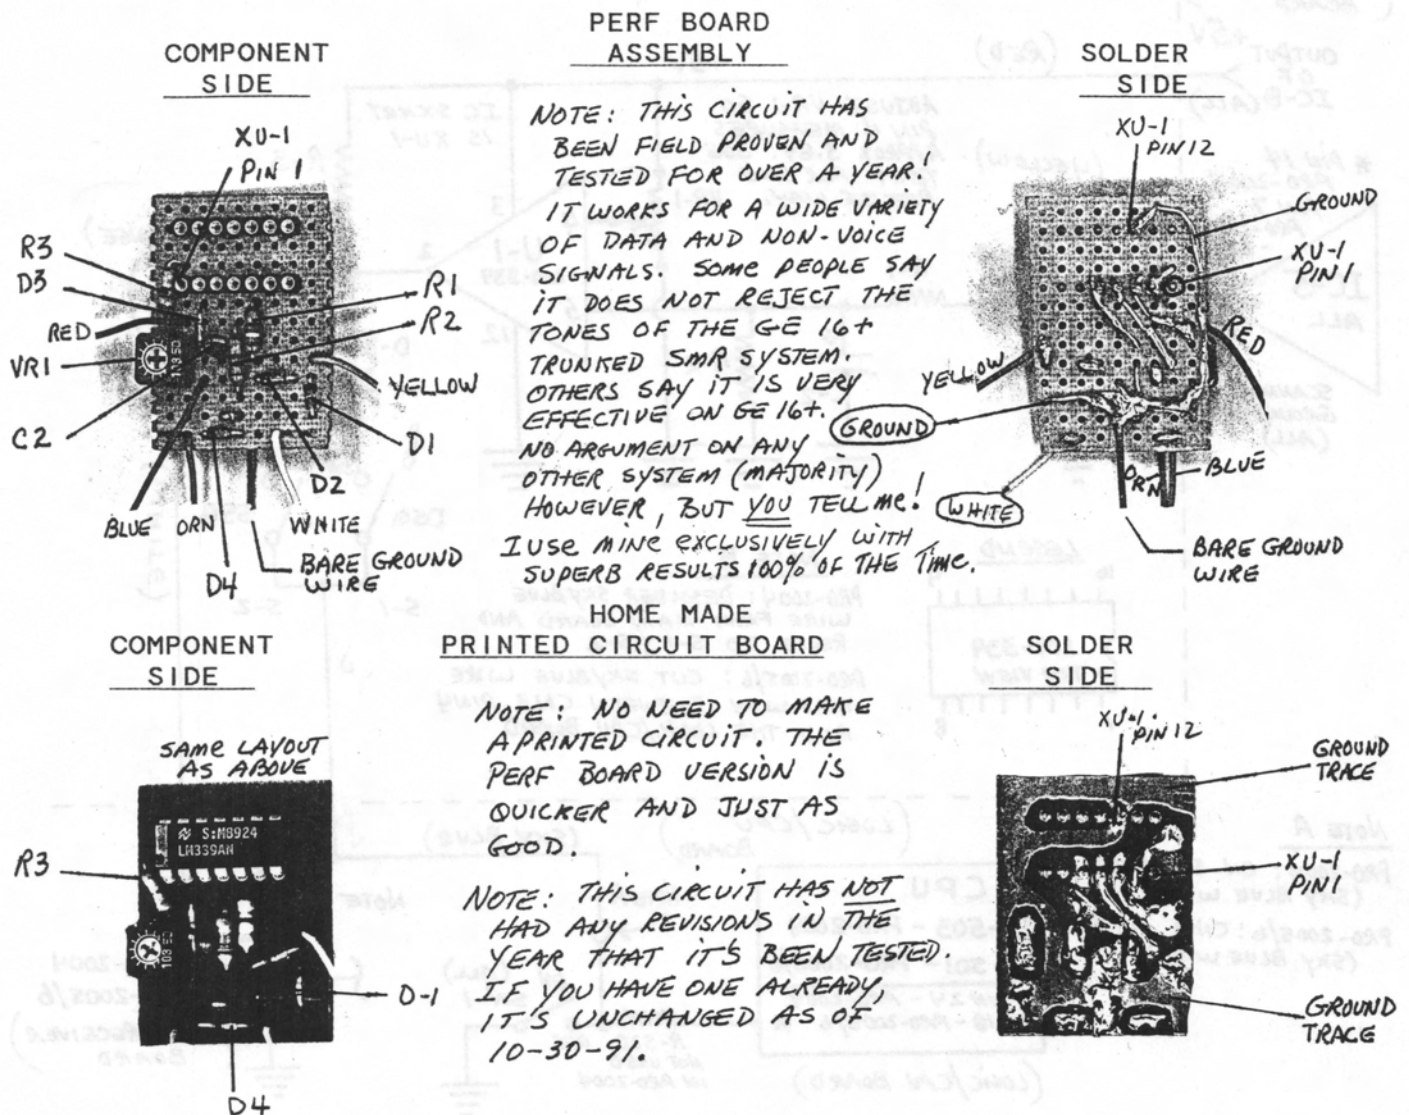 PERF BOARD
ASSEMBLY
COMPONENT
SIDE
XU-1
PIN 1
R3
D3
RED
VR1
C2
BLUE
ORN
D4
BARE GROUND
WIRE
WHITE
D2
D1
YELLOW
R2
R1
103SC
NOTE: THIS CIRCUIT HAS
BEEN FIELD PROVEN AND
TESTED FOR OVER A YEAR!
IT WORKS FOR A WIDE VARIETY
OF DATA AND NON-VOICE
SIGNALS. SOME PEOPLE SAY
IT DOES NOT REJECT THE
TONES OF THE GE 16+
TRUNKED SMR SYSTEM.
OTHERS SAY IT IS VERY
EFFECTIVE ON GE 16+.
NO ARGUMENT ON ANY
OTHER SYSTEM (MAJORITY)
HOWEVER, BUT YOU TELL ME!
I USE MINE EXCLUSIVELY WITH
SUPERB RESULTS 100% OF THE TIME.
SOLDER
SIDE
XU-1
PIN 12
GROUND
XU-1
PIN 1
RED
YELLOW
GROUND
WHITE
ORN
BLUE
BARE GROUND
WIRE
HOME MADE
PRINTED CIRCUIT BOARD
COMPONENT
SIDE
SAME LAYOUT
AS ABOVE
S:M8924
LM339AN
R3
103SC
D-1
D4
NOTE: NO NEED TO MAKE
A PRINTED CIRCUIT. THE
PERF BOARD VERSION IS
QUICKER AND JUST AS
GOOD.
NOTE: THIS CIRCUIT HAS NOT
HAD ANY REVISIONS IN THE
YEAR THAT IT'S BEEN TESTED.
IF YOU HAVE ONE ALREADY,
IT'S UNCHANGED AS OF
10-30-91.
SOLDER
SIDE
XU-1
PIN 12
GROUND
TRACE
XU-1
PIN 1
GROUND
TRACE